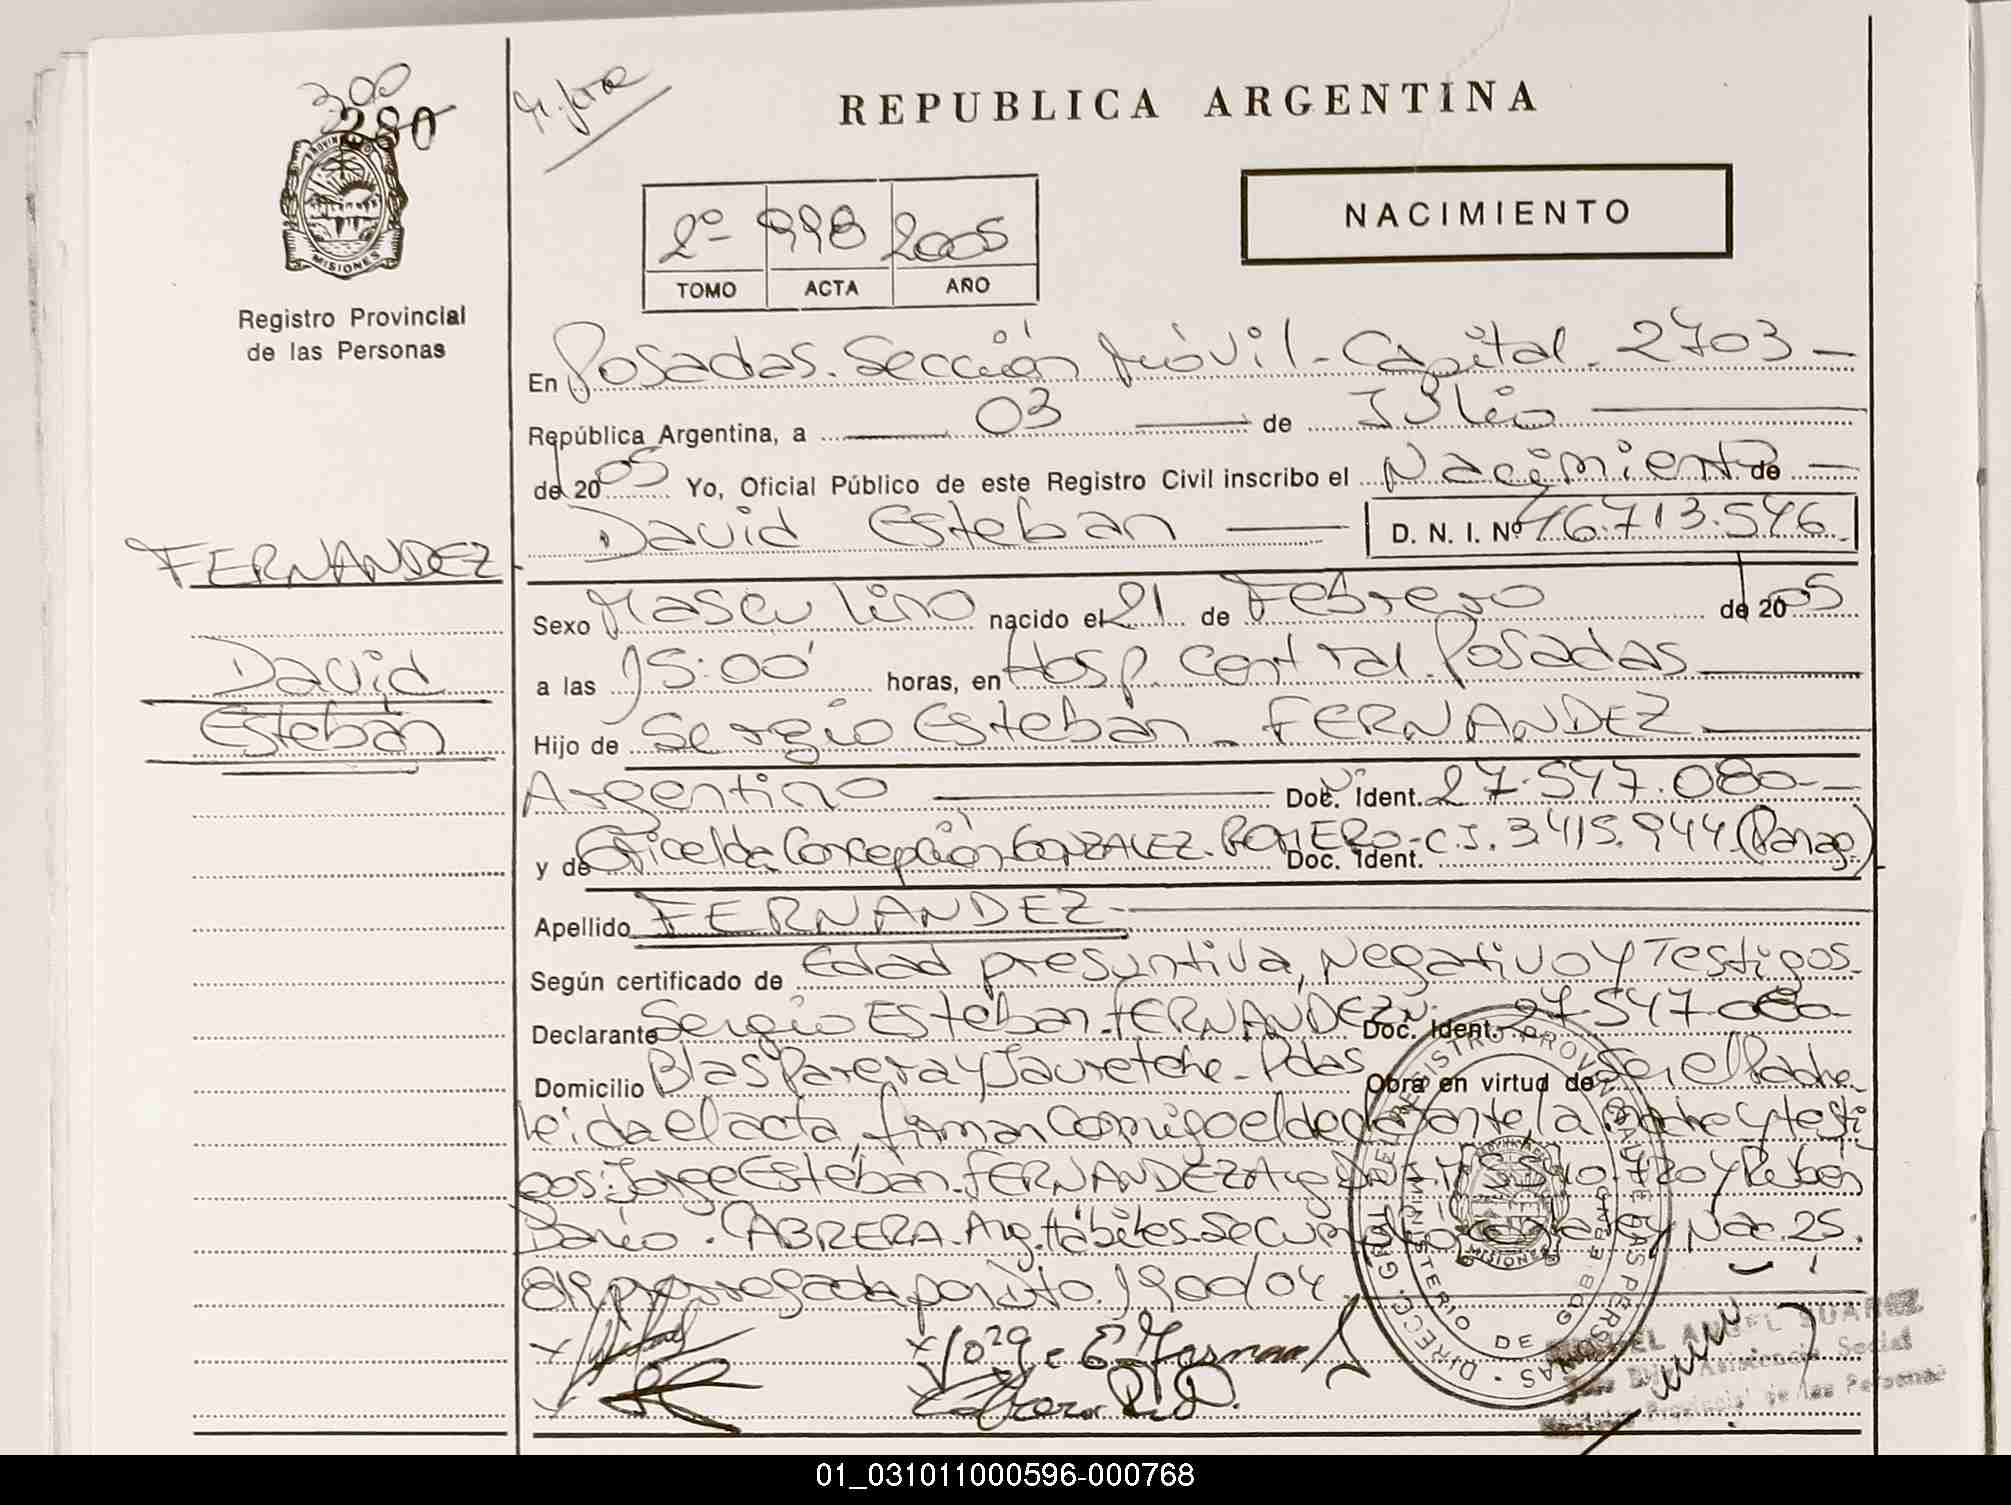 300
280
PROVINCIA
MISIONES
Registro Provincial
de las Personas
REPUBLICA ARGENTINA
NACIMIENTO
2º 998 2005
TOMO ACTA AÑO
En Posadas. Sección Móvil - Capital - 2703 -
República Argentina, a 03 de Julio
de 2005 Yo, Oficial Público de este Registro Civil inscribo el Nacimiento de
David Esteban D. N. I. Nº 46.713.546
FERNANDEZ
David
Esteban
Sexo Masculino nacido el 21 de Febrero de 2005
a las 15:00 horas, en Hosp. Central. Posadas
Hijo de Sergio Esteban - FERNANDEZ
Argentino Doc. Ident. 27.547.080 -
y de Griselda Concepción GONZALEZ. ROMERO - C.I. 3.415.944 (Parag.) Doc. Ident.
Apellido FERNANDEZ
Según certificado de Edad presuntiva, Negativo y Testigos.
Declarante Sergio Esteban FERNANDEZ Doc. Ident. 27.547.080 -
Domicilio Blas Parera y Jauretche - Pdas Obra en virtud de Ser el Padre
leida el acta, firman conmigo el declarante, la madre y testi
gos: Jorge Esteban. FERNANDEZ Arg. y Rubén
Darío. CABRERA. Arg. Hábiles. Ley Nac. 25.
819 prorrogada por Dto. 1900/04
Jorge E Fernan
Cabrera R. D.
DIRECC. GRAL. DEL REGISTRO PROVINCIAL DE LAS PERSONAS
MINISTERIO DE GOBIERNO
MISIONES
ANGEL SUAREZ
Asistencia Social
Provincial de las Personas
01_031011000596-000768